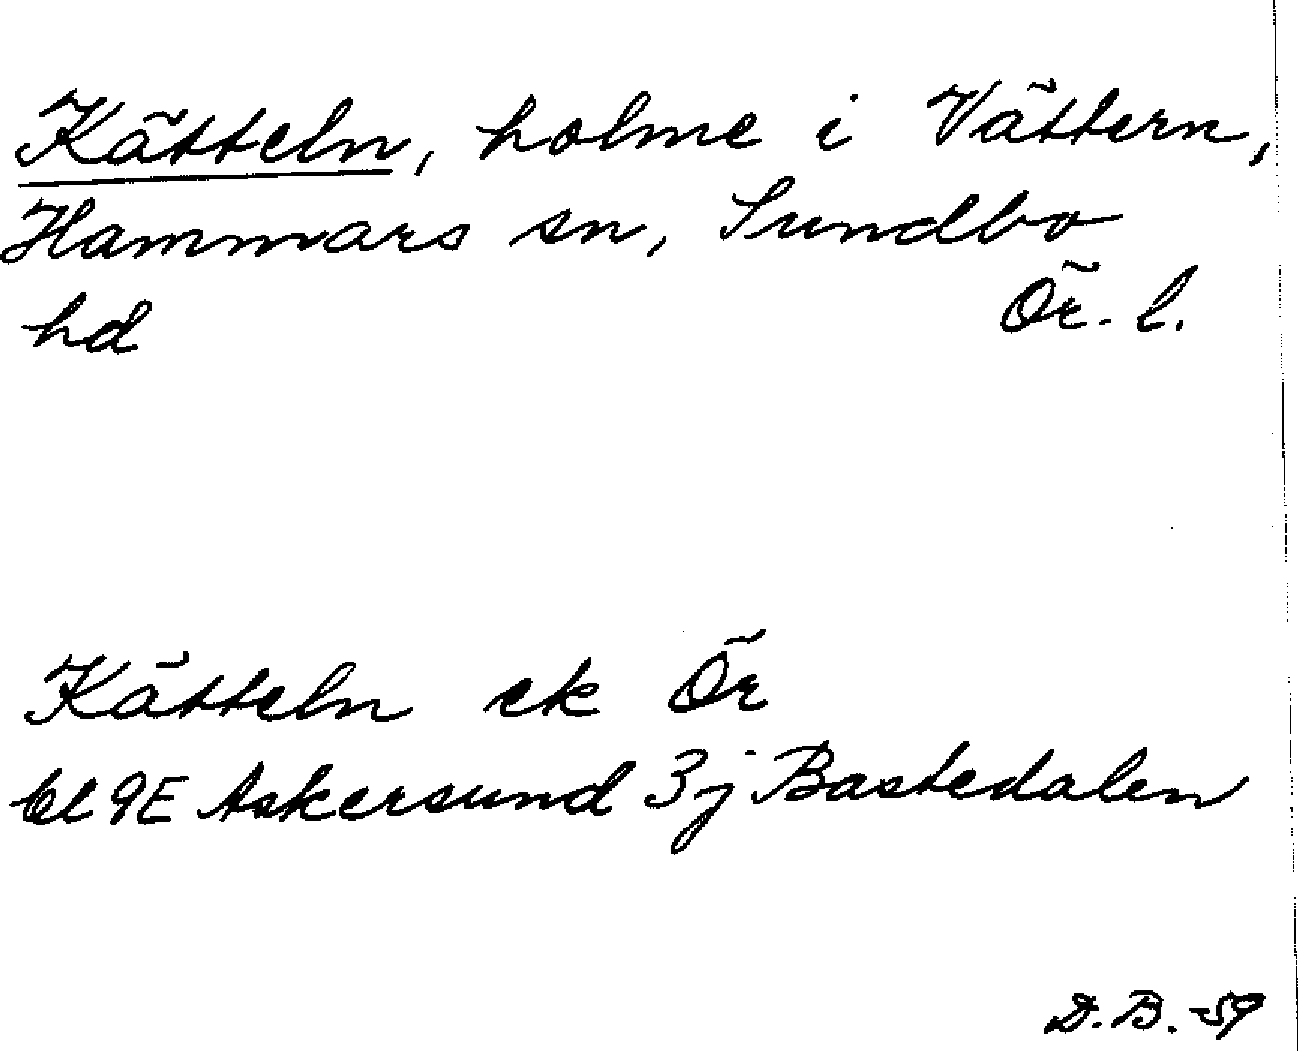 Kätteln, holme i Vättern,
Hammars sn, Sundbo
hd Ör. l.
Kätteln ek Ör
bl 9E Askersund 3j Bastedalen
D.B. -59